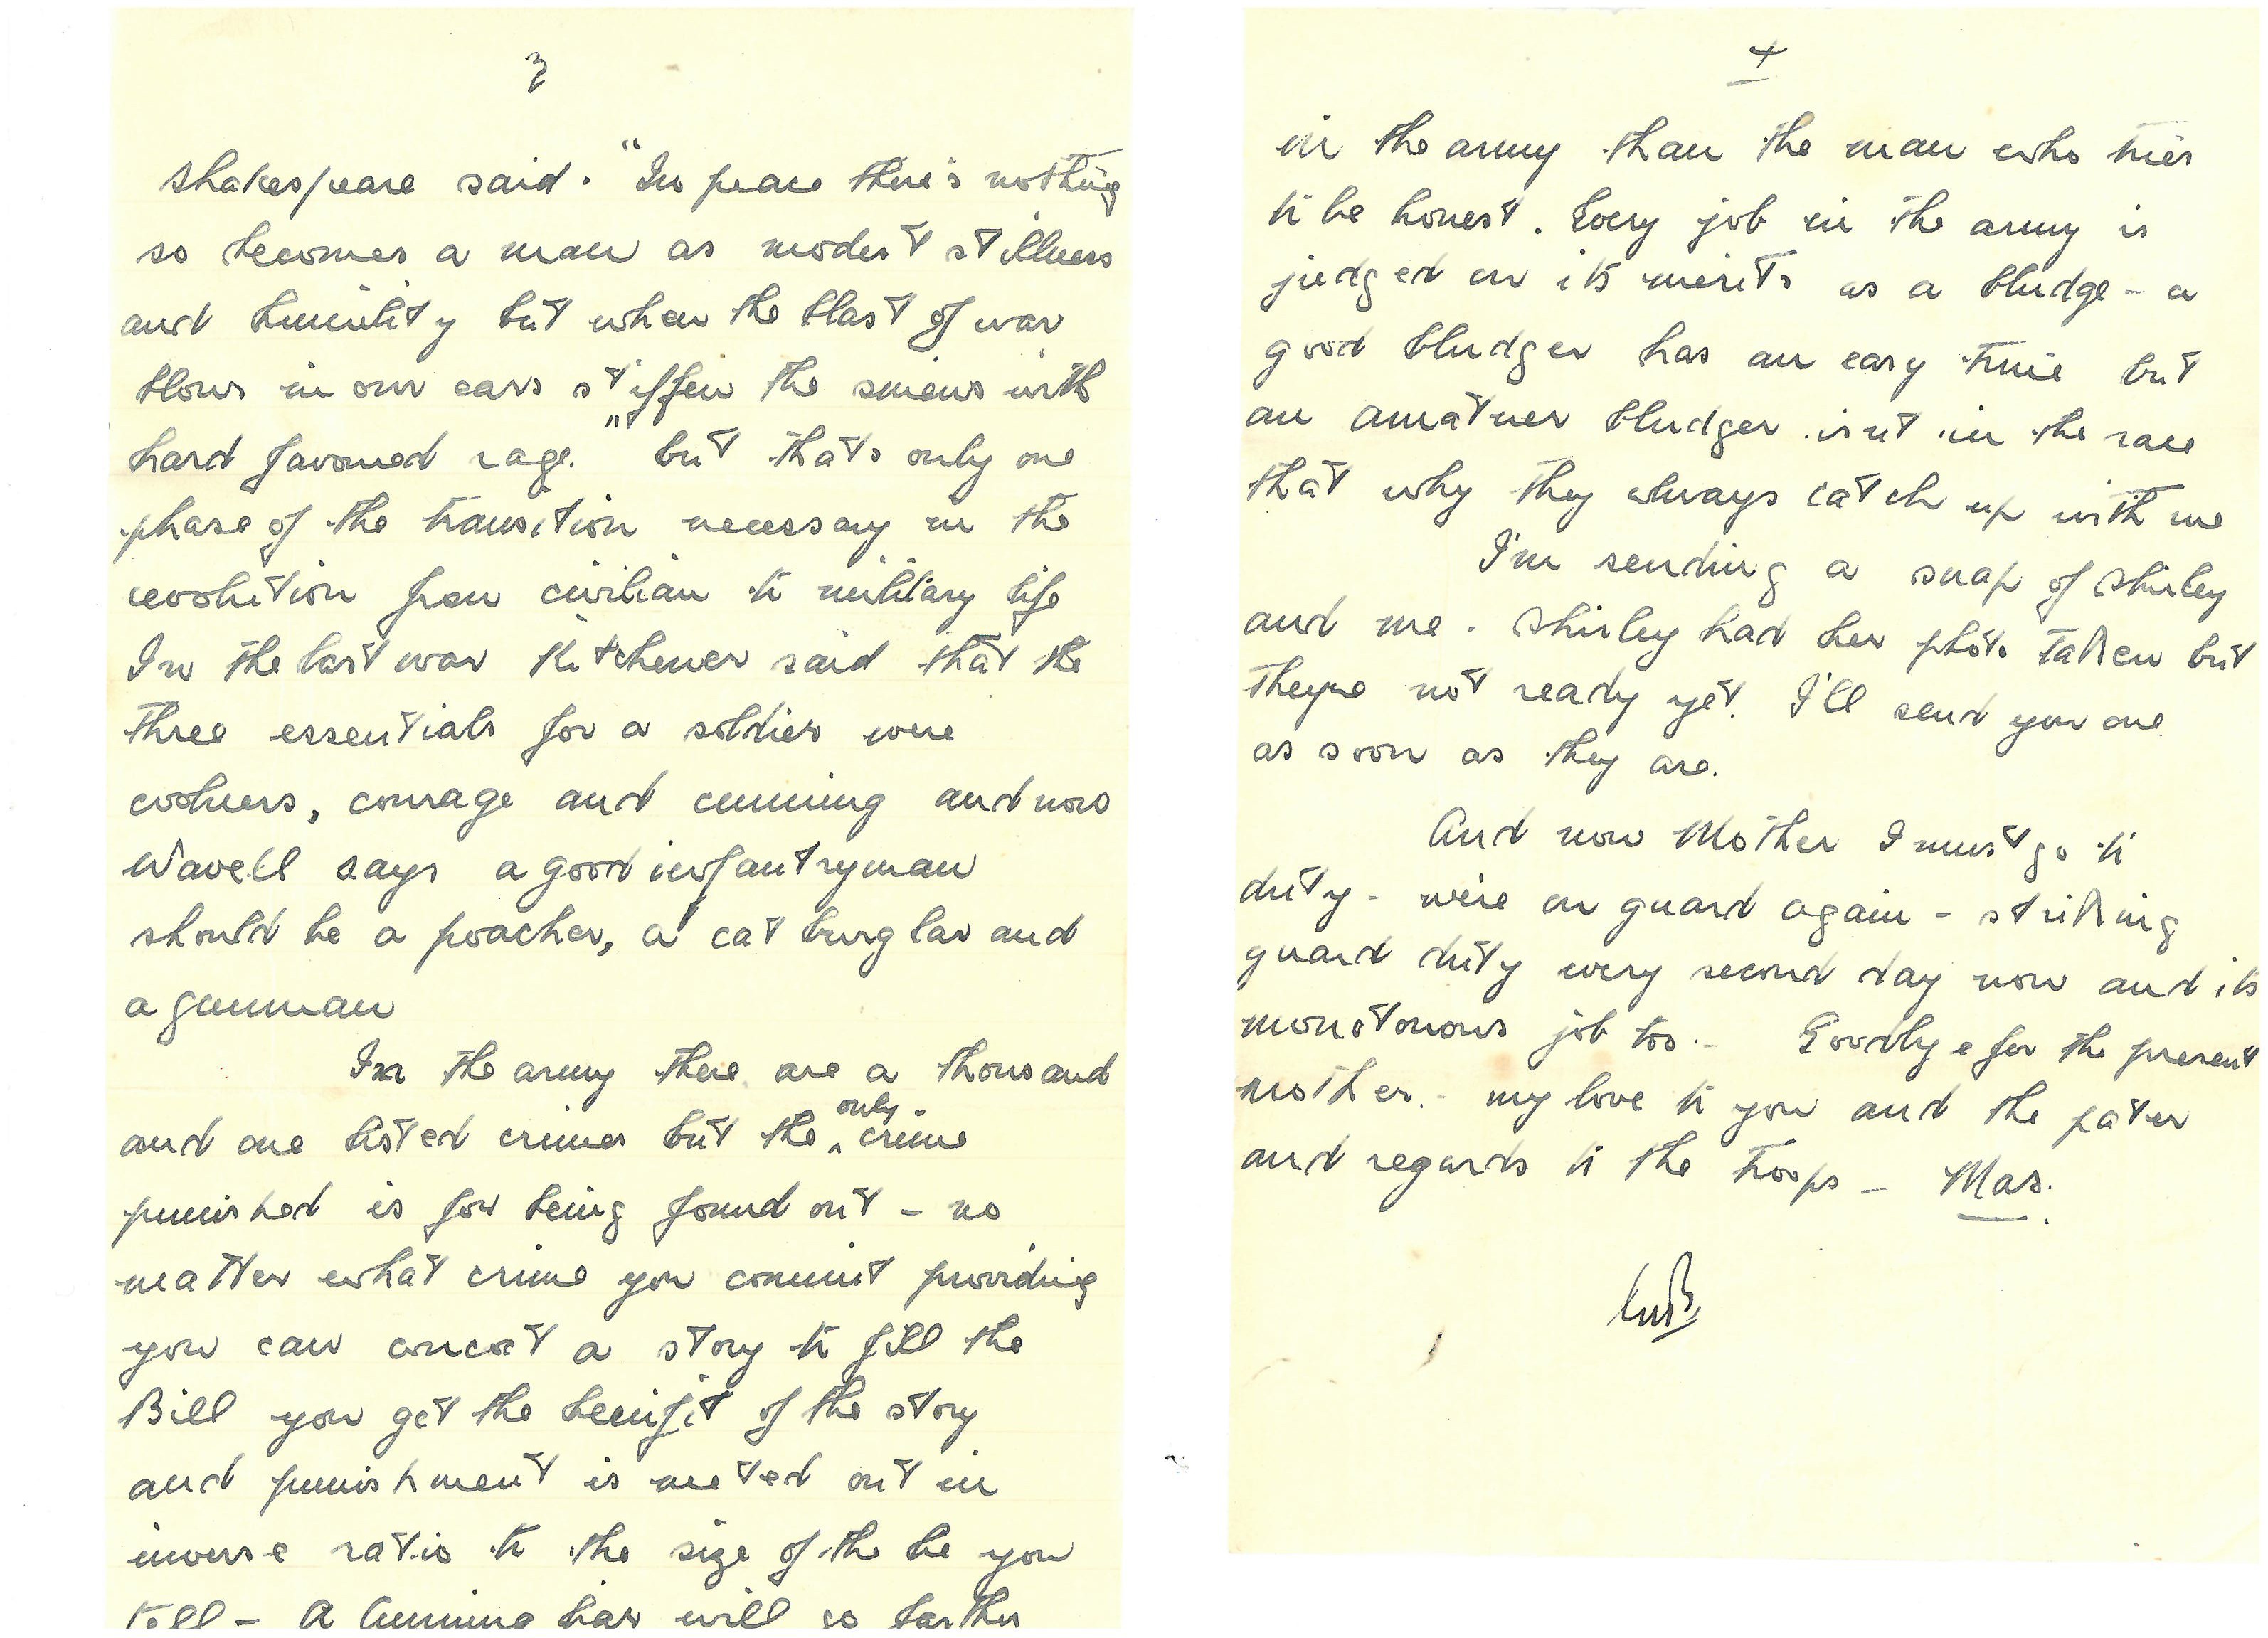 3
Shakespeare said. "In peace there's nothing
so becomes a man as modest stillness
and humility but when the blast of war
blows in our ears stiffen the sinews with
hard favoured rage." but thats only one
phase of the transition necessary in the
evolution from civilian to military life
In the last war Kitchener said that the
three essentials for a soldier were
coolness, courage and cunning and now
Wavell says a good infantryman
should be a poacher, a cat burglar and
a gunman
In the army there are a thousand
and one listed crimes but the only crime
punished is for being found out - no
matter what crime you commit providing
you can concoct a story to fill the
Bill you get the benifit of the story
and punishment is meted out in
inverse ratio to the size of the lie you
tell - A cunning liar will go farther
4
in the army than the man who tries
to be honest. Every job in the army is
judged on its merits as a bludge - a
good bludger has an easy time but
an amatuer bludger isnt in the race
that why they always catch up with me
I'm sending a snap of Shirley
and me. Shirley had her photo taken but
theyre not ready yet. I'll send you one
as soon as they are.
And now Mother I must go to
duty - we're on guard again - striking
guard duty every second day now and its
monotonous job too. - Goodbye for the present
mother. - my love to you and the pater
and regards to the troops - Mas.